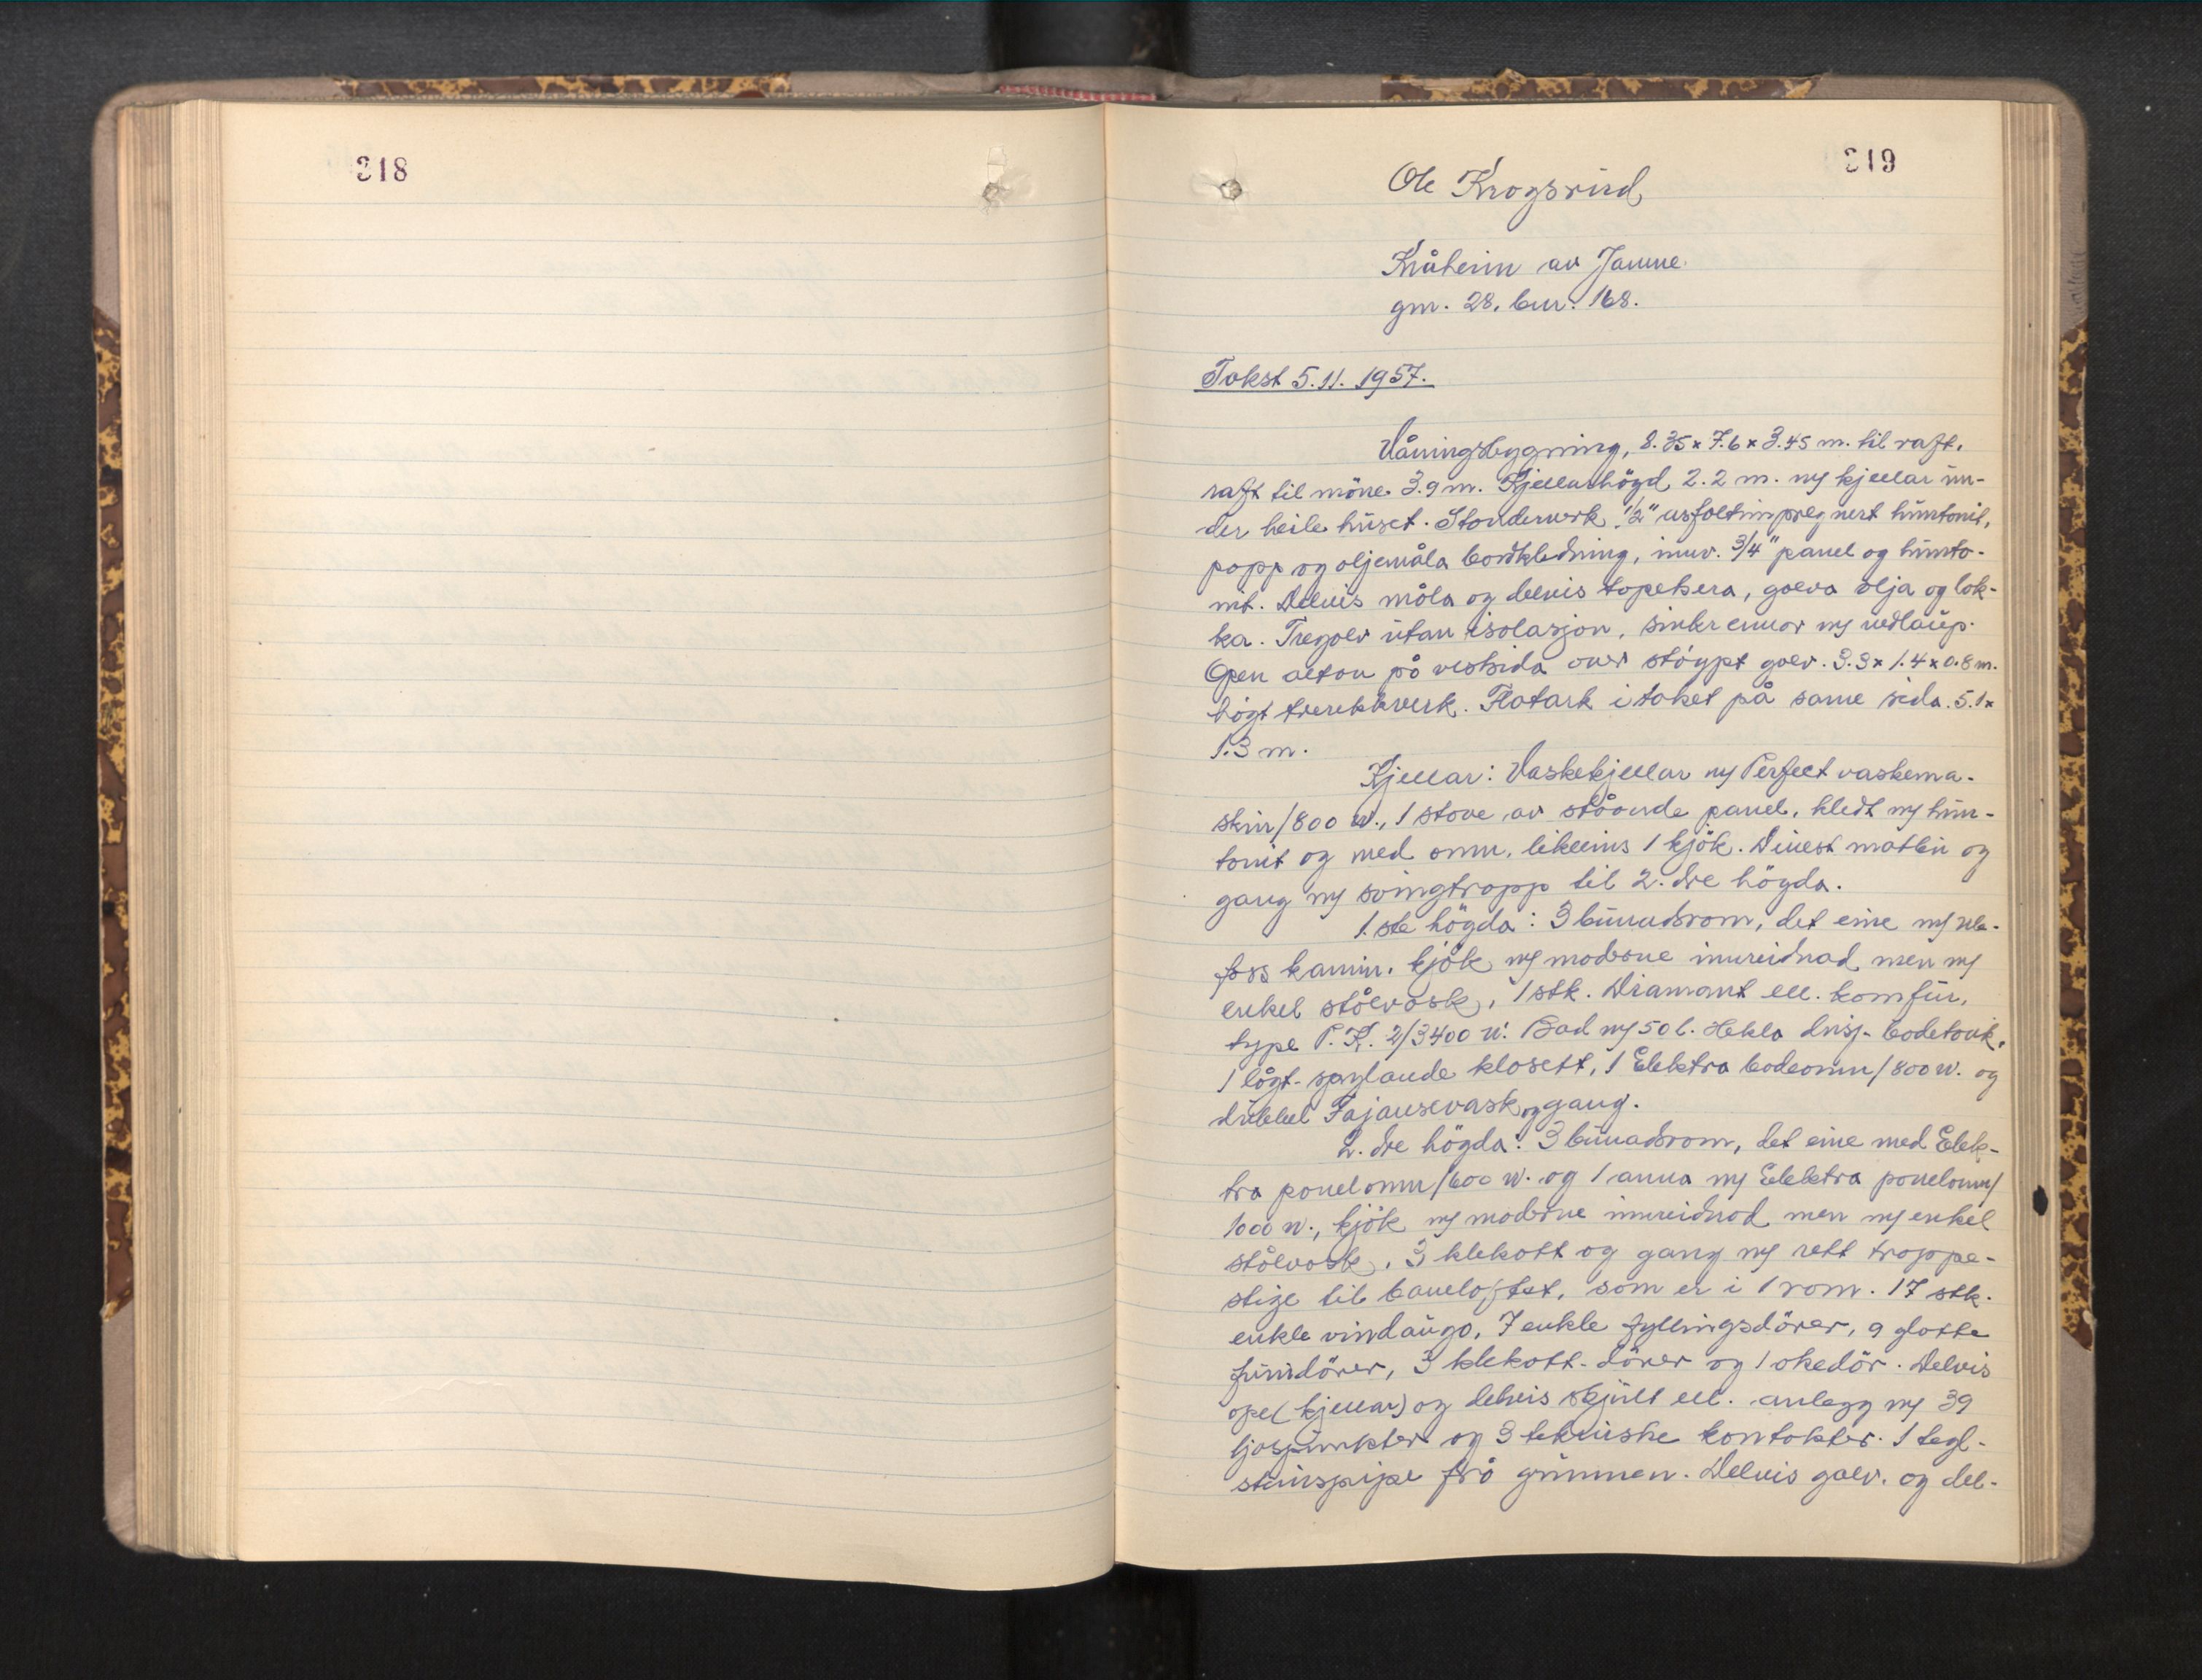 318
319
Ole Krogsrud
Kråheim av Jamne.
gnr. 28. bnr. 168.
Takst 5.11. 1957.
Våningsbygning, 8.35 x 7.6 x 3.45 m. til raft.
raft til möne 3.9 m. Kjellarhögd 2.2 m. m/ kjellar un-
der heile huset. Stenderverk, 1/2" asfaltimpregnert huntonit,
papp og oljemåla bordkledning, innv. 3/4" panel og hunto-
nit. Delvis måla og delvis tapetsera, golva olja og lak-
ka. Tregolv utan isolasjon, sinkrennor m/ nedlaup.
Open altan på vestsida over stöypt golv. 3.3 x 1.4 x 0.8 m.
högt trerekkverk. Flatark i taket på same sida. 5.1 x
1.3 m.
Kjellar: Vaskekjellar m/ Perfect vaskema-
skin/800 w., 1 stove av ståande panel, kledt m/ hun-
tonit og med omn, likeeins 1 kjök. Dinest matbu og
gang m/ svingtrapp til 2. dre högda.
1. ste högda: 3 bunadsrom, det eine m/ ule-
foss kamin. kjök m/ moderne innreidnad men m/
enkel stålvask, 1 stk. Diamant ell. komfur,
type P.K. 2/3400 w. Bad m/ 50 l. Hekla dusj- badetank,
1 lågt-spylande klosett, 1 Elektra badeomn/800 w. og
dubbel Fajansevask og gang.
2. dre högda: 3 bunadsrom, det eine med Elek-
tra panelomn/600 w. og 1 anna m/ Elektra panelomn/
1000 w., kjök m/ moderne innreidnad men m/ enkel
stålvask, 3 klekott og gang m/ rett trappe-
stige til baneloftet, som er i 1 rom. 17 stk.
enkle vindaugo, 7 enkle fyllingsdörer, 9 glatte
finerdörer, 3 klekott-dörer og 1 okedör. Delvis
ope (kjellar) og delvis skjult ell. anlegg m/ 39
ljospunkter og 3 tekniske kontakter. 1 tegl-
steinspipe frå grunnen. Delvis galv. og del-